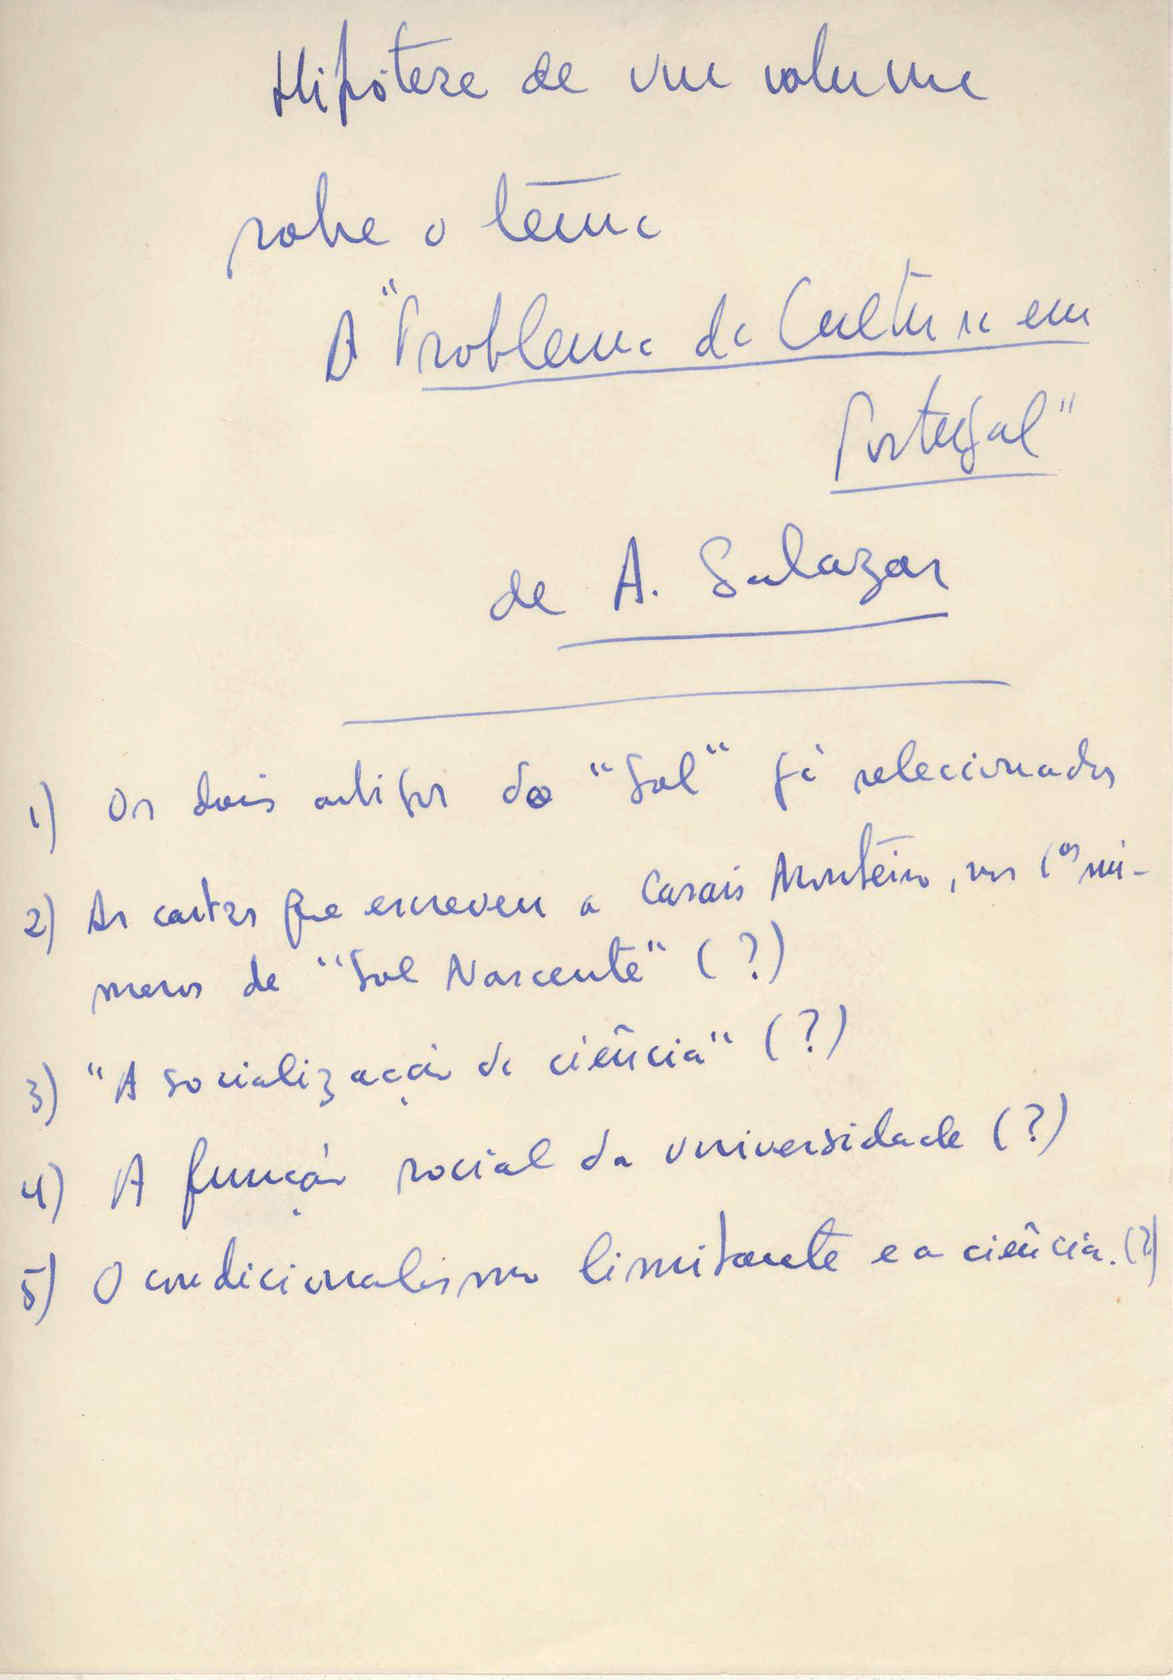 Hipótese de um volume
sobre o tema
O "Problema da Cultura em
Portugal"
de A. Salazar
1) Os dois artigos do "Sol" já seleccionados
2) As cartas que escreveu a Casais Monteiro, nos 1ᵒˢ nú-
meros de "Sol Nascente" (?)
3) "A socialização da ciência" (?)
4) A função social da universidade (?)
5) O condicionalismo limitante e a ciência. (?)